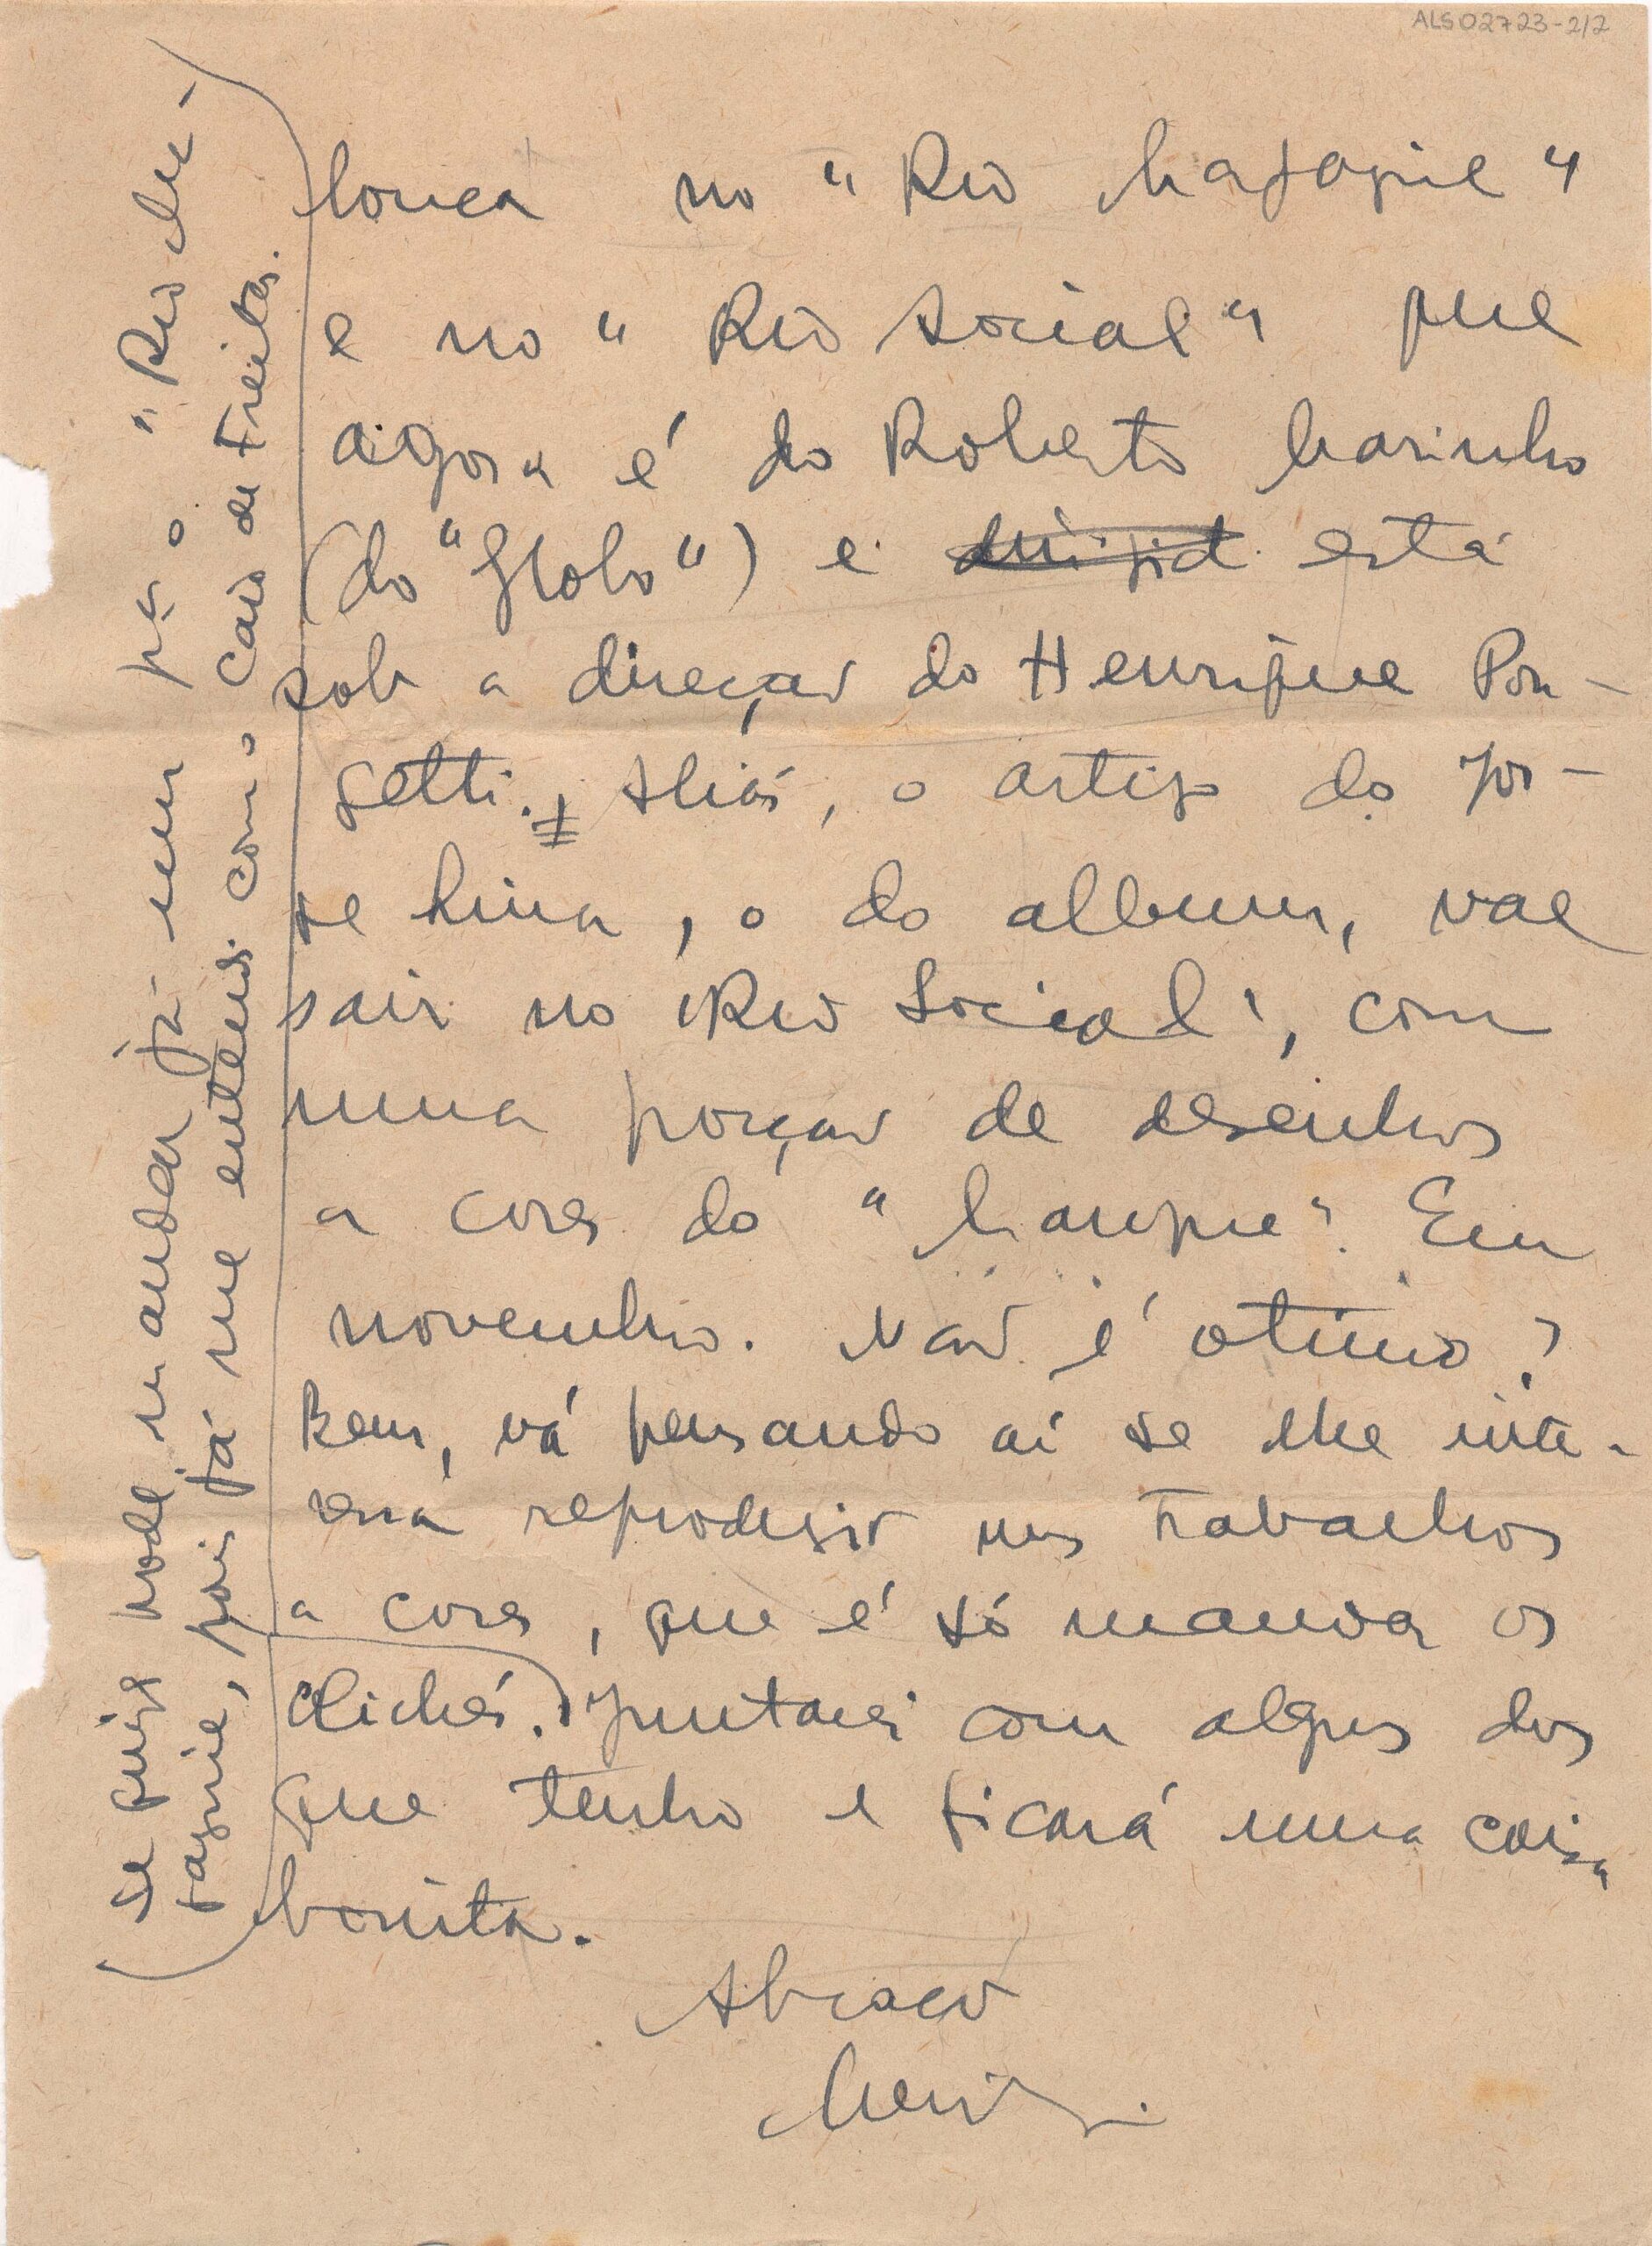 ALS02723-2/2
louca no "Rio Magazine"
e no "Rio Social" que
agora é do Roberto Marinho
(do "Globo") e dirigid está
sob a direção do Henrique Pon-
getti. + Aliás, o artigo do Jor-
ge Lima, o do album, vae
sair no "Rio Social", com
uma porção de desenhos
a cores do "Mangue". Em
novembro. Não é otimo?
Bem, vá pensando aí se lhe inte-
ressa reproduzir uns trabalhos
a cores, que é só mandar os
clichés. Juntarei com alguns dos
que tenho e ficará uma coisa
bonita.
Abraço
Se quizer pode mandar já um pa o "Rio Ma-
gazine", pois já me entendi com o Caio de Freitas.